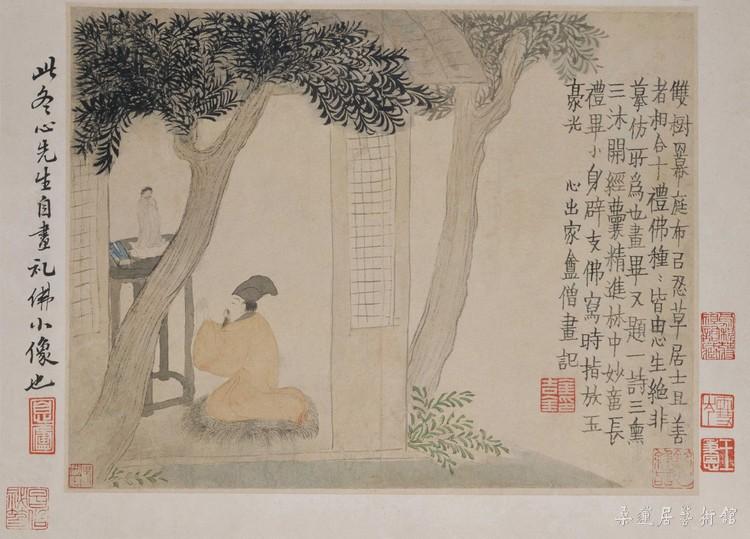 雙樹幕庭布㠯忍草居士且善
者相合十禮佛種〻皆由心生絕非
摹仿所為也畫畢又題一詩三熏
三沐開經囊精進林中妙意長
禮畢小身辟支佛寫時指放玉
豪光　心出家盦僧畫記
此冬心先生自畫礼佛小像也
桑蓮居藝術館